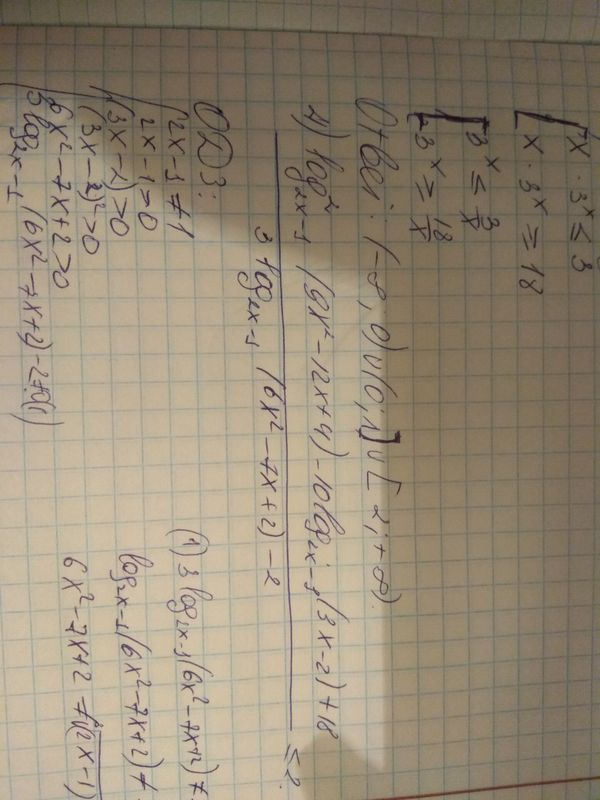 x · 3ˣ ≤ 3
x · 3ˣ ≥ 18
3ˣ ≤ 3/x
3ˣ ≥ 18/x
Ответ: (-∞, 0) ∪ (0; 1] ∪ [2; +∞).
4) log²₂ₓ₋₁ (9x² - 12x + 4) - 10 log₂ₓ₋₁ (3x - 2) + 18
3 log₂ₓ₋₁ (6x² - 7x + 2) - 2
≤ 2.
ОДЗ:
2x - 1 ≠ 1
2x - 1 > 0
(3x - 2) > 0
(3x - 2)² > 0
6x² - 7x + 2 > 0
3 log₂ₓ₋₁ (6x² - 7x + 2) - 2 ≠ 0 (1)
(1) 3 log₂ₓ₋₁ (6x² - 7x + 2) ≠
log₂ₓ₋₁ (6x² - 7x + 2) ≠
6x² - 7x + 2 ≠ (2x - 1)